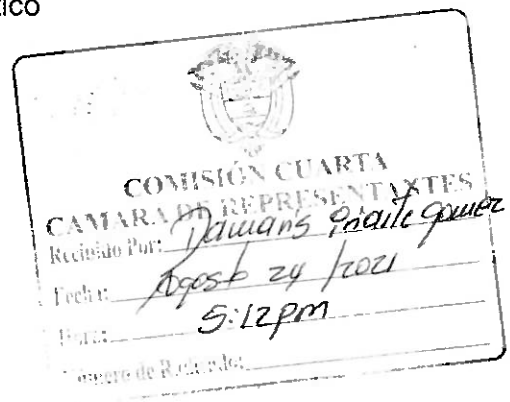 XICO
COMISIÓN CUARTA
CAMARA DE REPRESENTANTES
Recibido Por: Damaris
Fecha: Agosto 24 / 2021
Hora: 5:12pm
Número de Radicado: